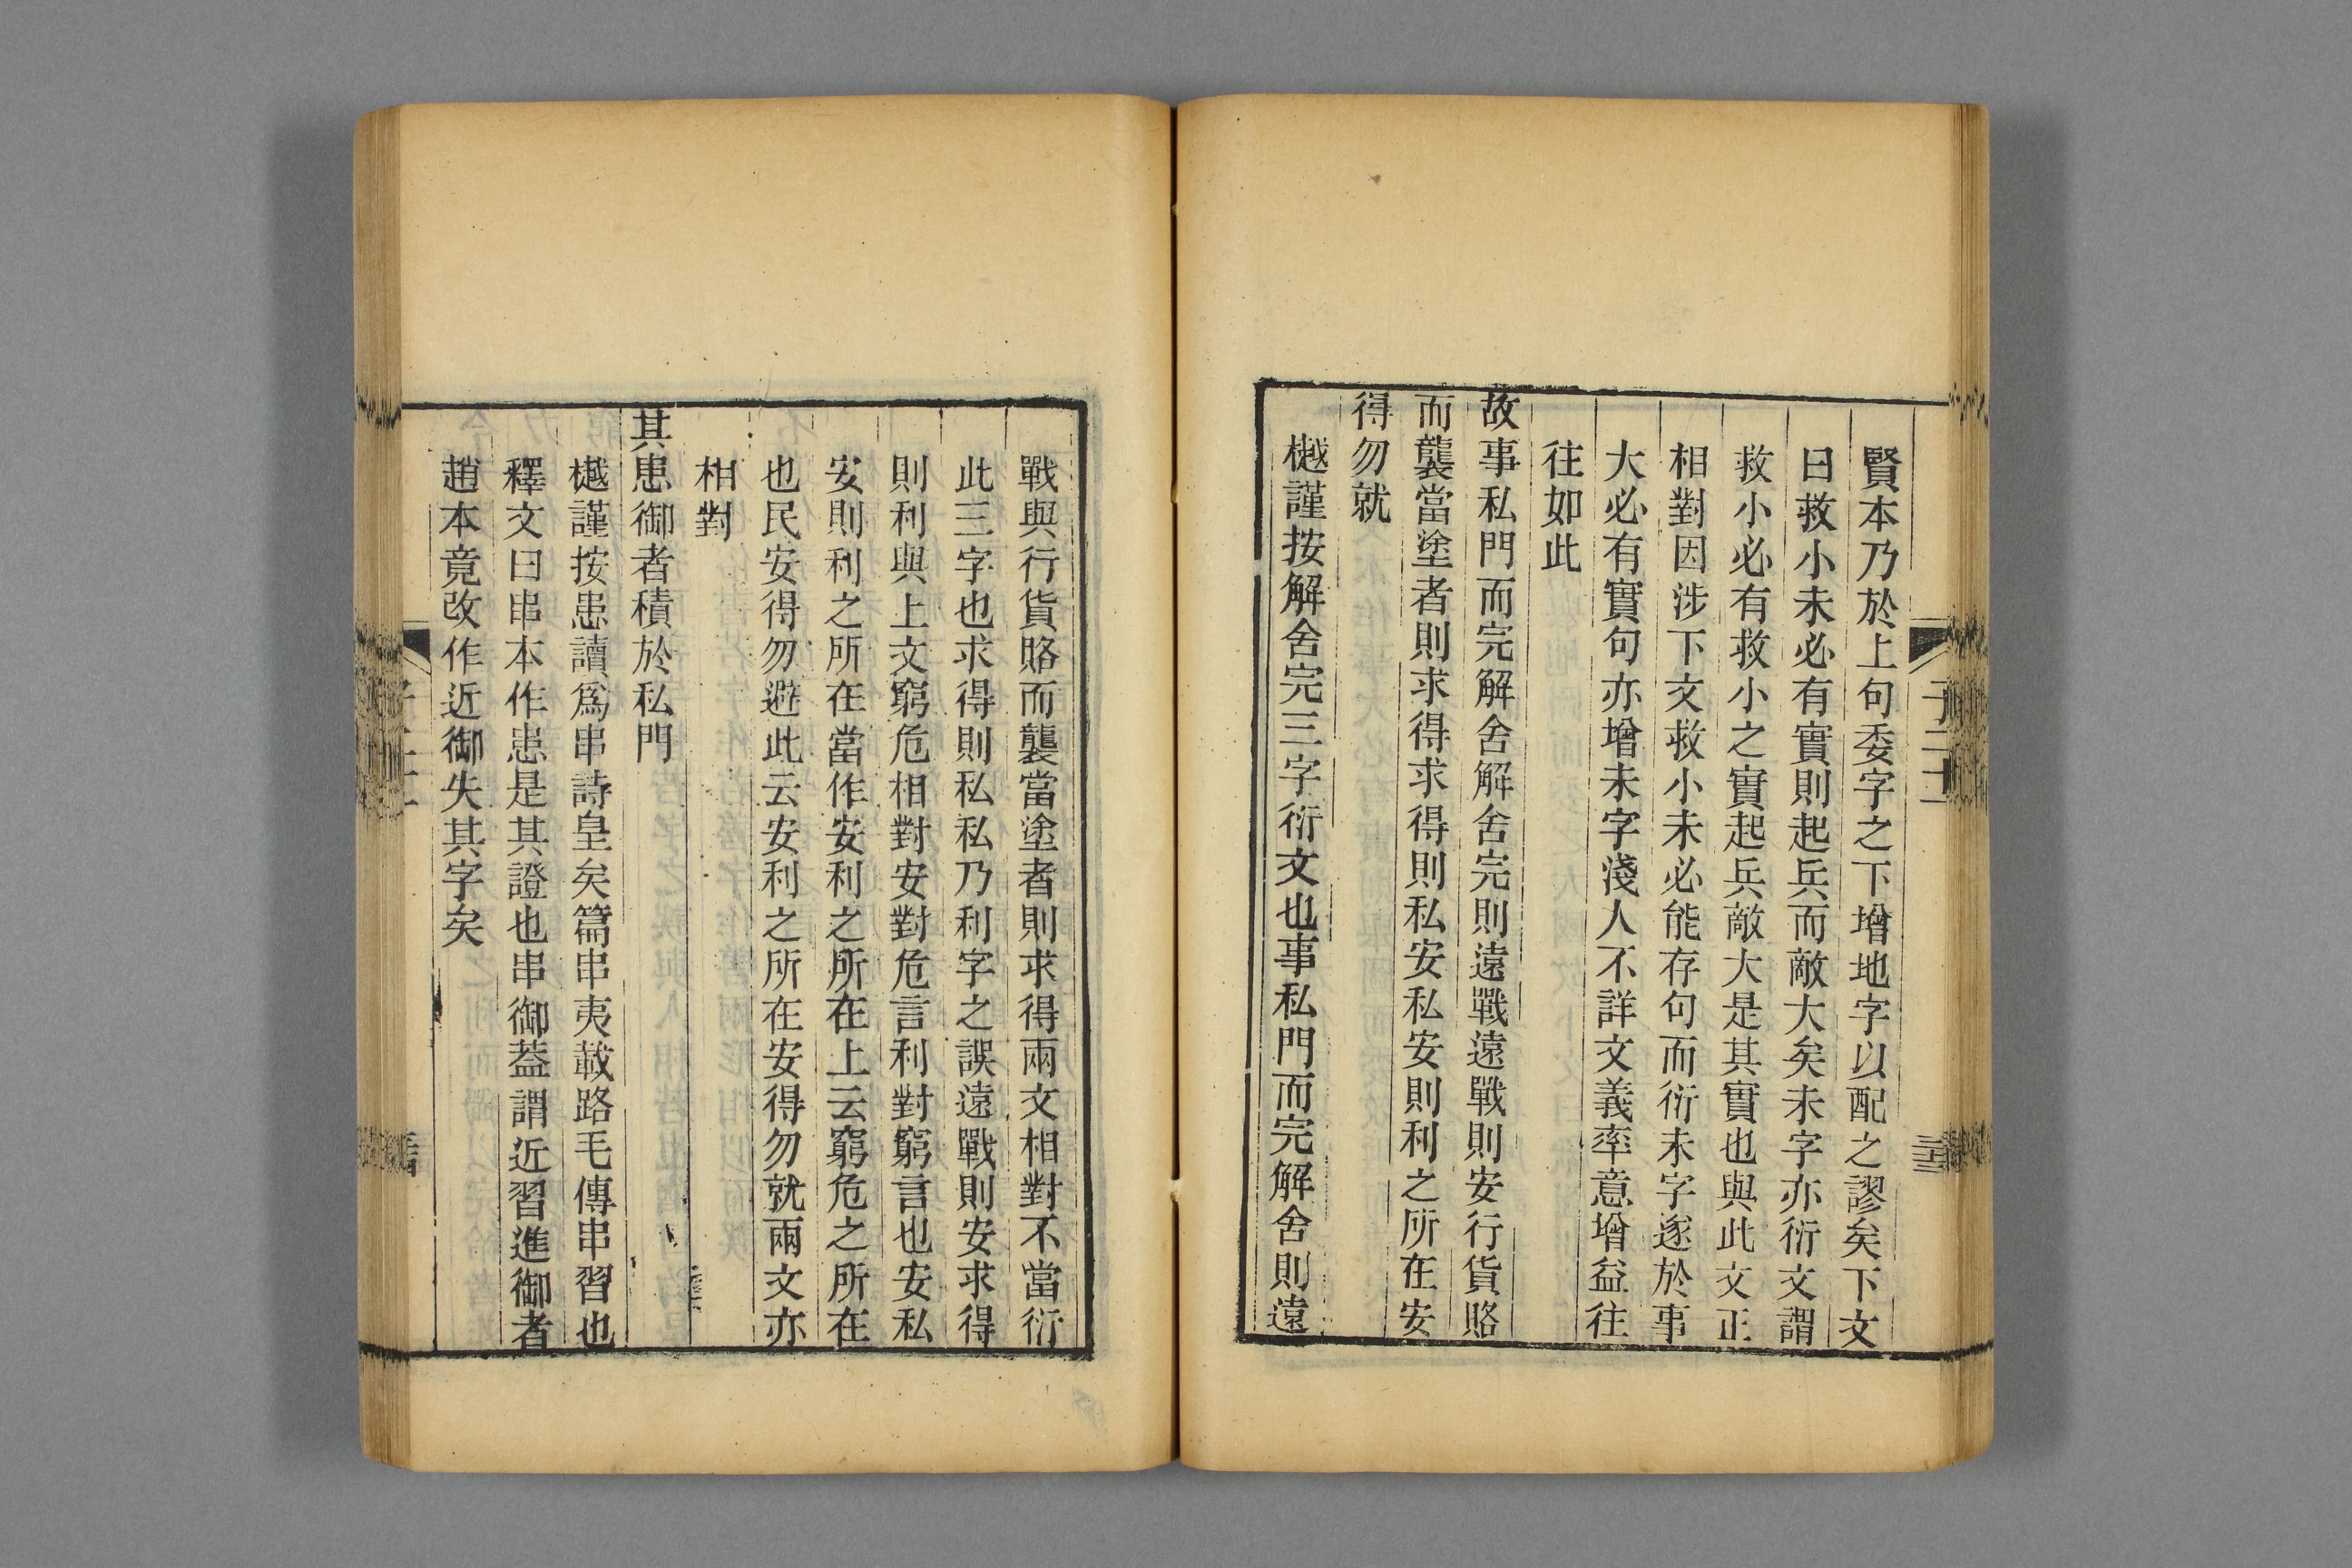 賢本乃於上句委字之下增地字以配之謬矣下文
曰救小未必有實則起兵而敵大矣未字亦衍文謂
救小必有救小之實起兵敵大是其實也與此文正
相對因涉下文救小未必能存句而衍未字遂於事
大必有實句亦增未字淺人不詳文義率意增益往
往如此
故事私門而完解舍解舍完則遠戰遠戰則安行貨賂
而襲當塗者則求得求得則私安私安則利之所在安
得勿就
樾謹按解舍完三字衍文也事私門而完解舍則遠
戰與行貨賂而襲當塗者則求得兩文相對不當衍
此三字也求得則私私乃利字之誤遠戰則安求得
則利與上文窮危相對安對危言利對窮言也安私
安則利之所在當作安利之所在上云窮危之所在
也民安得勿避此云安利之所在安得勿就兩文亦
相對
其患御者積於私門
樾謹按患讀爲串詩皇矣篇串夷載路毛傳串習也
釋文曰串本作患是其證也串御葢謂近習進御者
趙本竟改作近御失其字矣